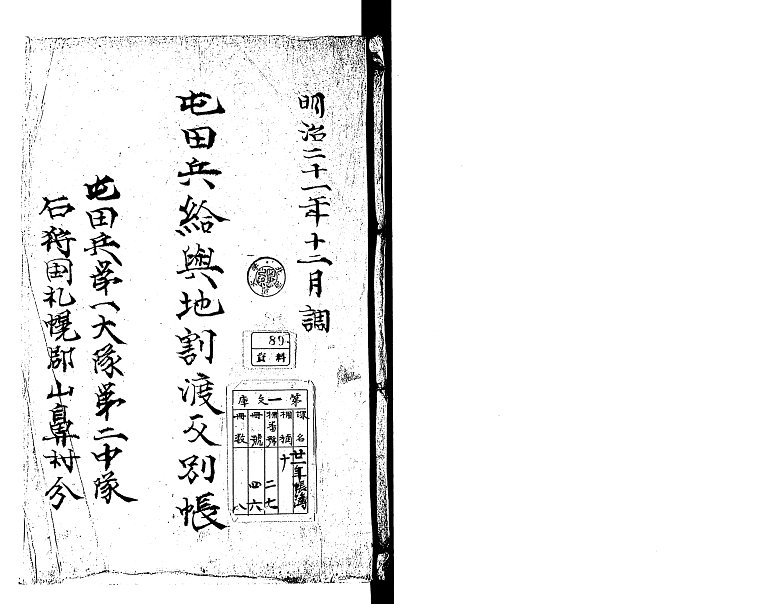 明治二十一年十二月調
屯田兵給與地割渡反別帳
屯田兵第一大隊第二中隊
石狩国札幌郡山鼻村分
89
資料
第一文庫
課名
棚柄
棚番號
冊號
冊数
廿一年帳簿
十
二七
四六
八